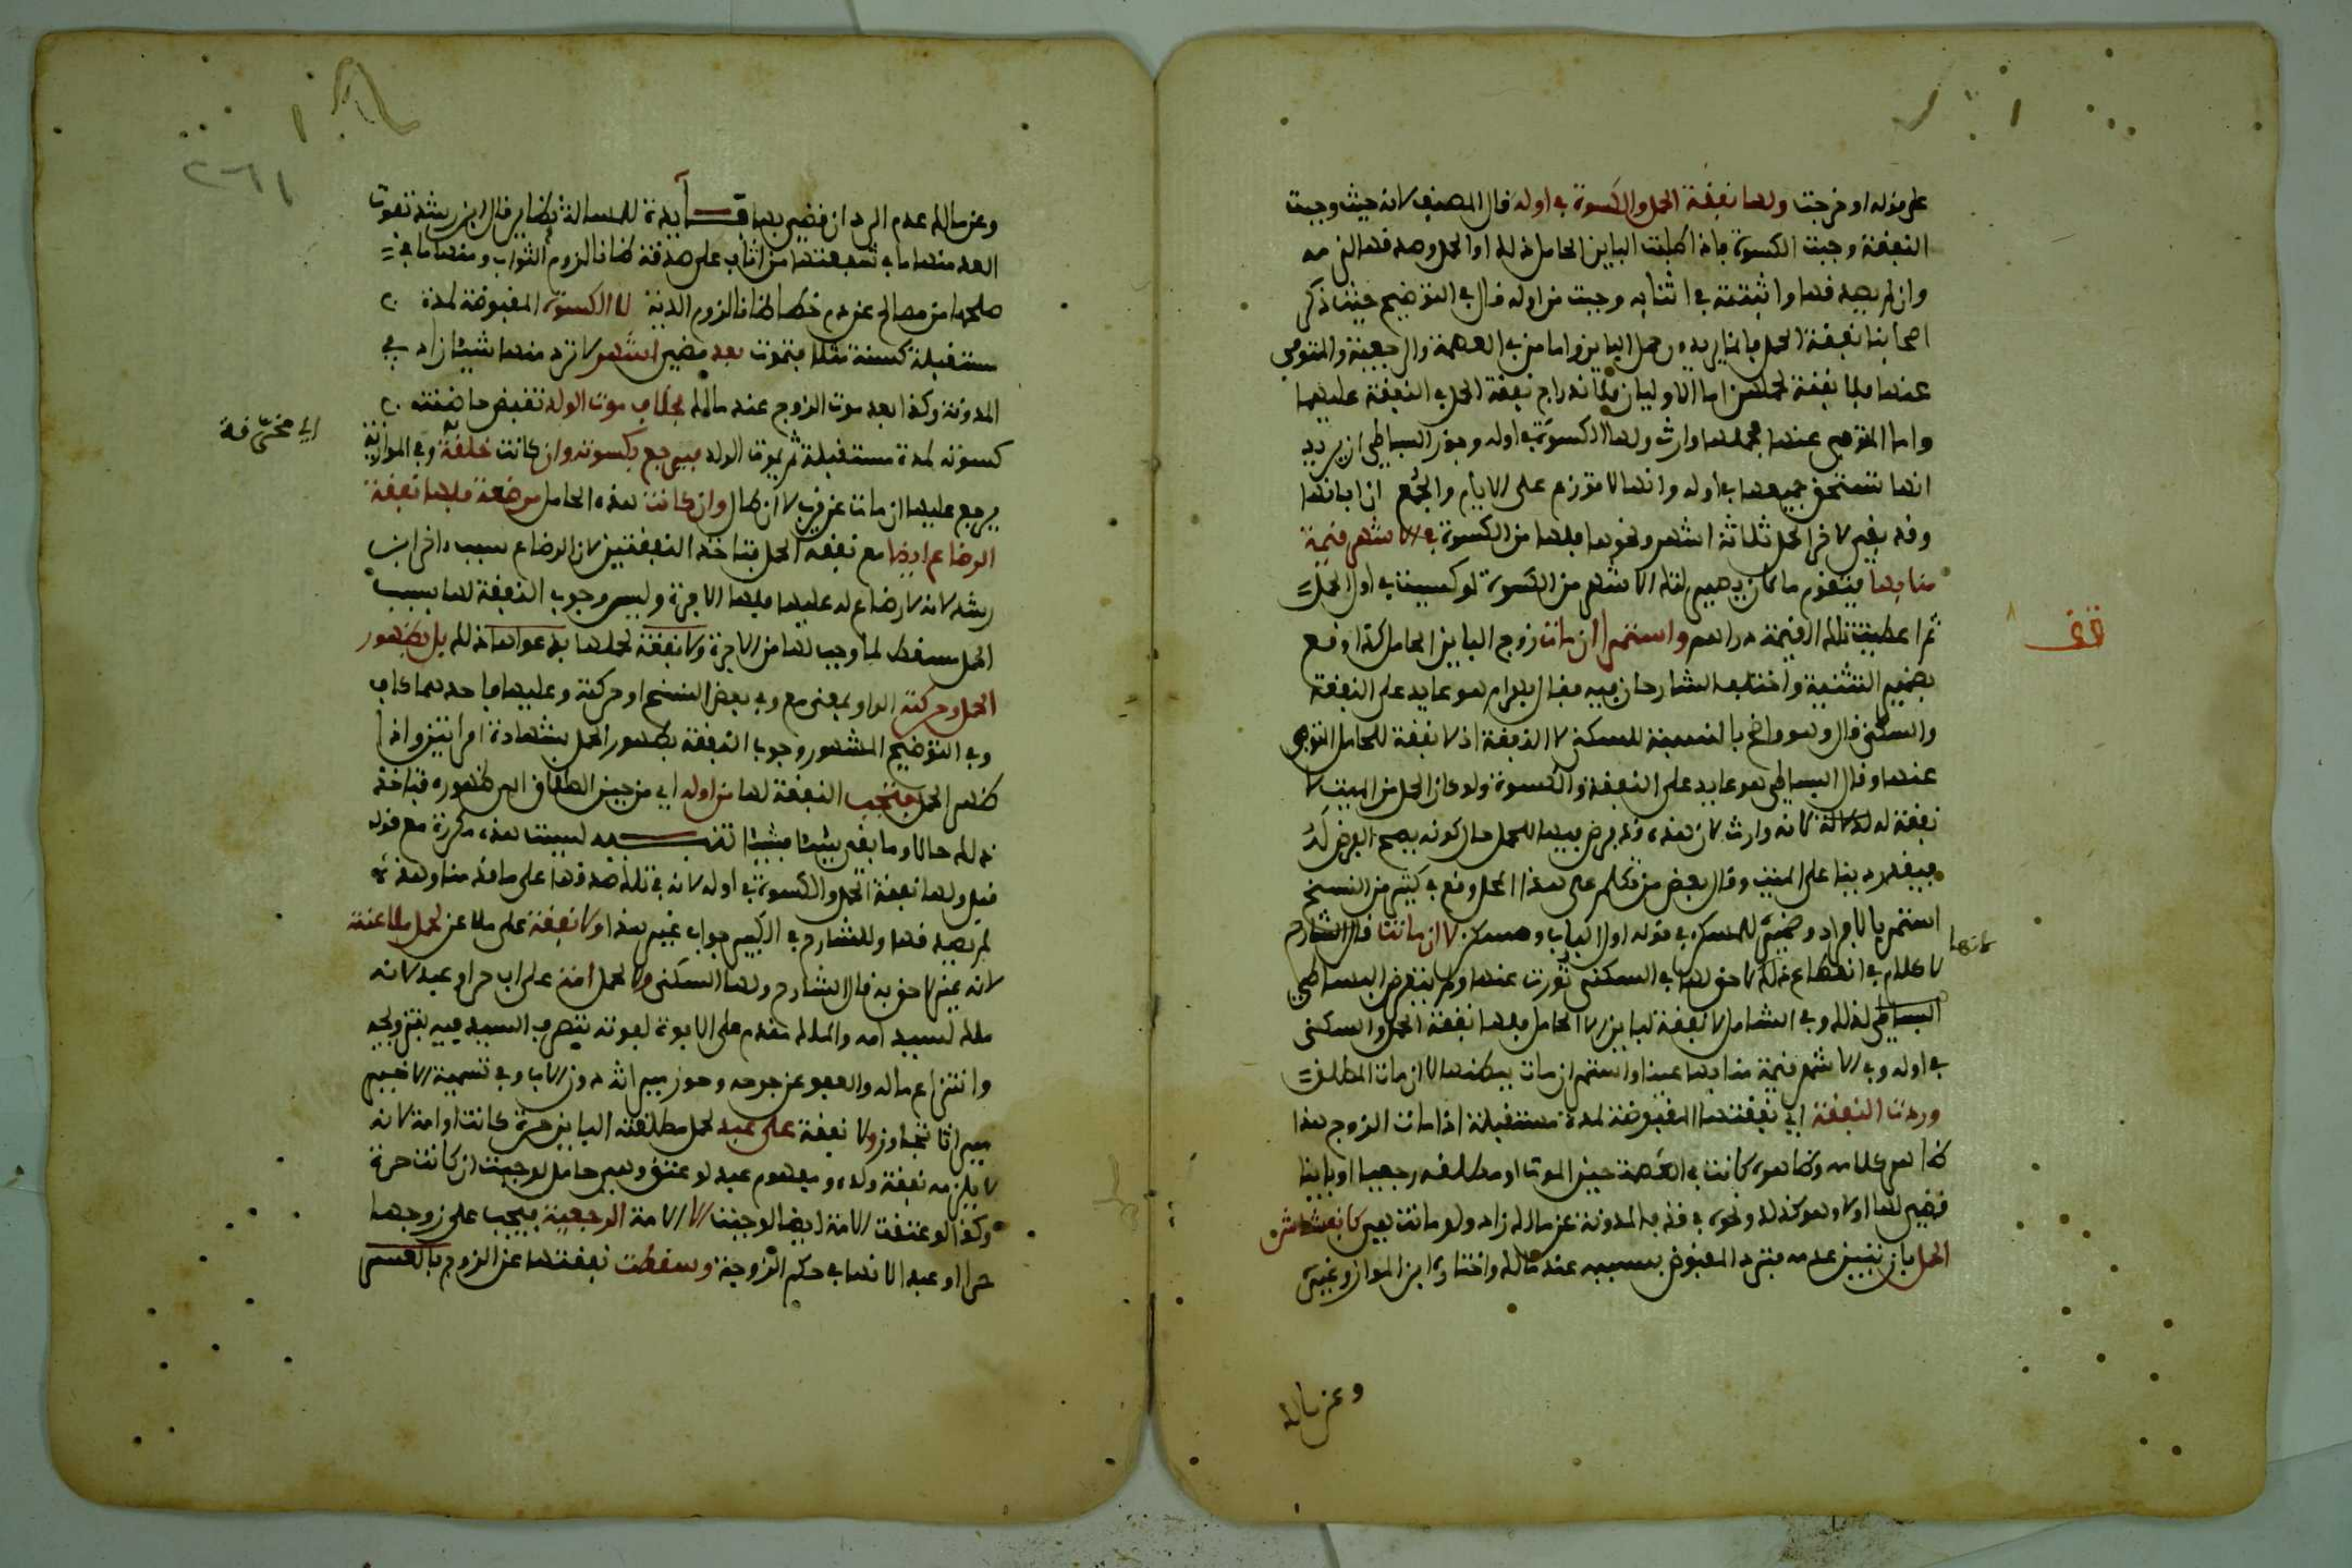 على منزله او خرجت ولها نفقة الحمل والكسوة في اوله قال المصنف لانه حيث وجبت
النفقة وجبت الكسوة فاذا طلبت الباين الحامل ذلك اول الحمل وصدقها لزمه
وان لم يصدقها واثبتته في اثنايه وجبت من اوله قال في التوضيح حيث ذكر
اصحابنا نفقة الحمل فانما يريدون حمل الباين واما من في العصمة والرجعية والمتوفى
عنها فلا نفقة لحملهن اما الاوليان فلاندراج نفقة الحمل في النفقة عليهما
واما المتوفى عنها فحملها وارث ولها الكسوة في اوله وجوز البساطي ان يريد
انها تستحق جميعها في اوله وانها لا توزع على الايام والجمع ان ابانها
وقد بقي لاخر الحمل ثلاثة اشهر ونحوها فلها من الكسوة في الاشهر قيمة
منابها فيقوم ما كان يصير لتلك الاشهر من الكسوة لو كسيت في اول الحمل
ثم اعطيت تلك القيمة دراهم واستمر ان مات زوج الباين الحامل كذا وقع
بضمير التثنية واختلف الشارحان فيه فقال بهرام هو عايد على النفقة
والسكنى قال وهو واضح بالنسبة للسكنى لا النفقة اذ لا نفقة للحامل المتوفى
عنها وقال البساطي هو عايد على النفقة والكسوة ولو كان الحمل من الميت لا
نفقة له لانه وارث لان هذه
وقال بعض من تكلم على هذا المحل وقع في كثير من النسخ
استمر بالافراد وضميره للمسكن في قوله اول الباب ومسكن لا ان ماتت قال الشارح
لا كلام في انقطاع ذلك لا حق لها في السكنى تورث عنها ولم يتعرض البساطي
البساطي لذلك وفي الشامل لا نفقة لباين الا الحامل فلها نفقة الحمل والسكنى
في اوله وفي الاشهر قيمة منابها عينا واستمر ان مات بكنها لا ان مات المطلق
وردت النفقة اي نفقتها المقبوضة لمدة مستقبلة اذا مات الزوج هذا
ظاهر كلامه وظاهره كانت في العصمة حين الموت او مطلقة رجعيا او باينا
قضي لها او لا وهو كذلك ونحوه في المدونة عن مالك زاد ولو ماتت هي كانفشاش
الحمل بان تبين عدمه فترد المقبوض بسببه عند مالك واختاره ابن المواز وغيره
وعن مالك
وعن مالك عدم الرد ان قضي بها فايدة للمسالة نظاير قال ابن رشد تفوت
العد منها ما في شفعتها من اثاب على صدقة ظانا لزوم الثواب ومنها ما في
صلحها من مصالح عن دم خطا ظانا لزوم الدية لا الكسوة المقبوضة لمدة
مستقبلة كسنة مثلا فتموت بعد مضي اشهر لا ترد منها شيئا زاد في
المدونة وكذا بعد موت الزوج عند مالك بخلاف موت الولد تقبض حاضنته
كسوته لمدة مستقبلة ثم يموت الولد فيرجع بكسوته وان كانت خلقة وفي الموازية
يرجع عليها ان مات عن قرب لا ان طال وان كانت هذه الحامل مرضعة فلها نفقة
الرضاع ايضا مع نفقة الحمل فتاخذ النفقتين لان الرضاع سبب اخر ابن
رشد لانه لا رضاع له عليها فلها الاجرة وليس وجوب النفقة لها بسبب
الحمل يسقط لما وجب لها من الاجرة ولا نفقة لحملها بدعواها ذلك بل بظهور
الحمل وحركته الواو بمعنى مع وفي بعض النسخ او حركته وعليها فاحدهما كاف
وفي التوضيح المشهور وجوب النفقة بظهور الحمل بشهادة امراتين واذا
ظهر الحمل فتجب النفقة لها من اوله اي من حين الطلاق الى ظهوره فتاخذ
ذلك حالا وما بقي شيئا فشيئا تنبيه ليست هذه مكررة مع قوله
قبل ولها نفقة الحمل والكسوة في اوله لانه في تلك صدقها على ما قدمنا وهذه
لم يصدقها وللشارح في الكبير جواب غير هذا ولا نفقة على ملاعن لحمل ملاعنة
لانه غير لاحق به قال الشارح ولها السكنى ولا لحمل امة على اب حر او عبد لانه
ملك لسيد امه والملك مقدم على الابوة لقوته يتصرف السيد فيه بتزويجه
وانتزاع ماله والعفو عن جرحه وحوز ميراثه دون الاب وفي تسمية الاخير
ميراثا تجاوز ولا نفقة على عبد لحمل مطلقته الباين حرة كانت او امة لانه
لا يلزمه نفقة ولده ومفهوم عبد لو عتق وهي حامل لوجبت ان كانت حرة
وكذا لو عتقت الامة ايضا لوجبت الا الامة الرجعية فيجب على زوجها
حرا او عبدا لانها في حكم الزوجة وسقطت نفقتها عن الزوج بالعسر